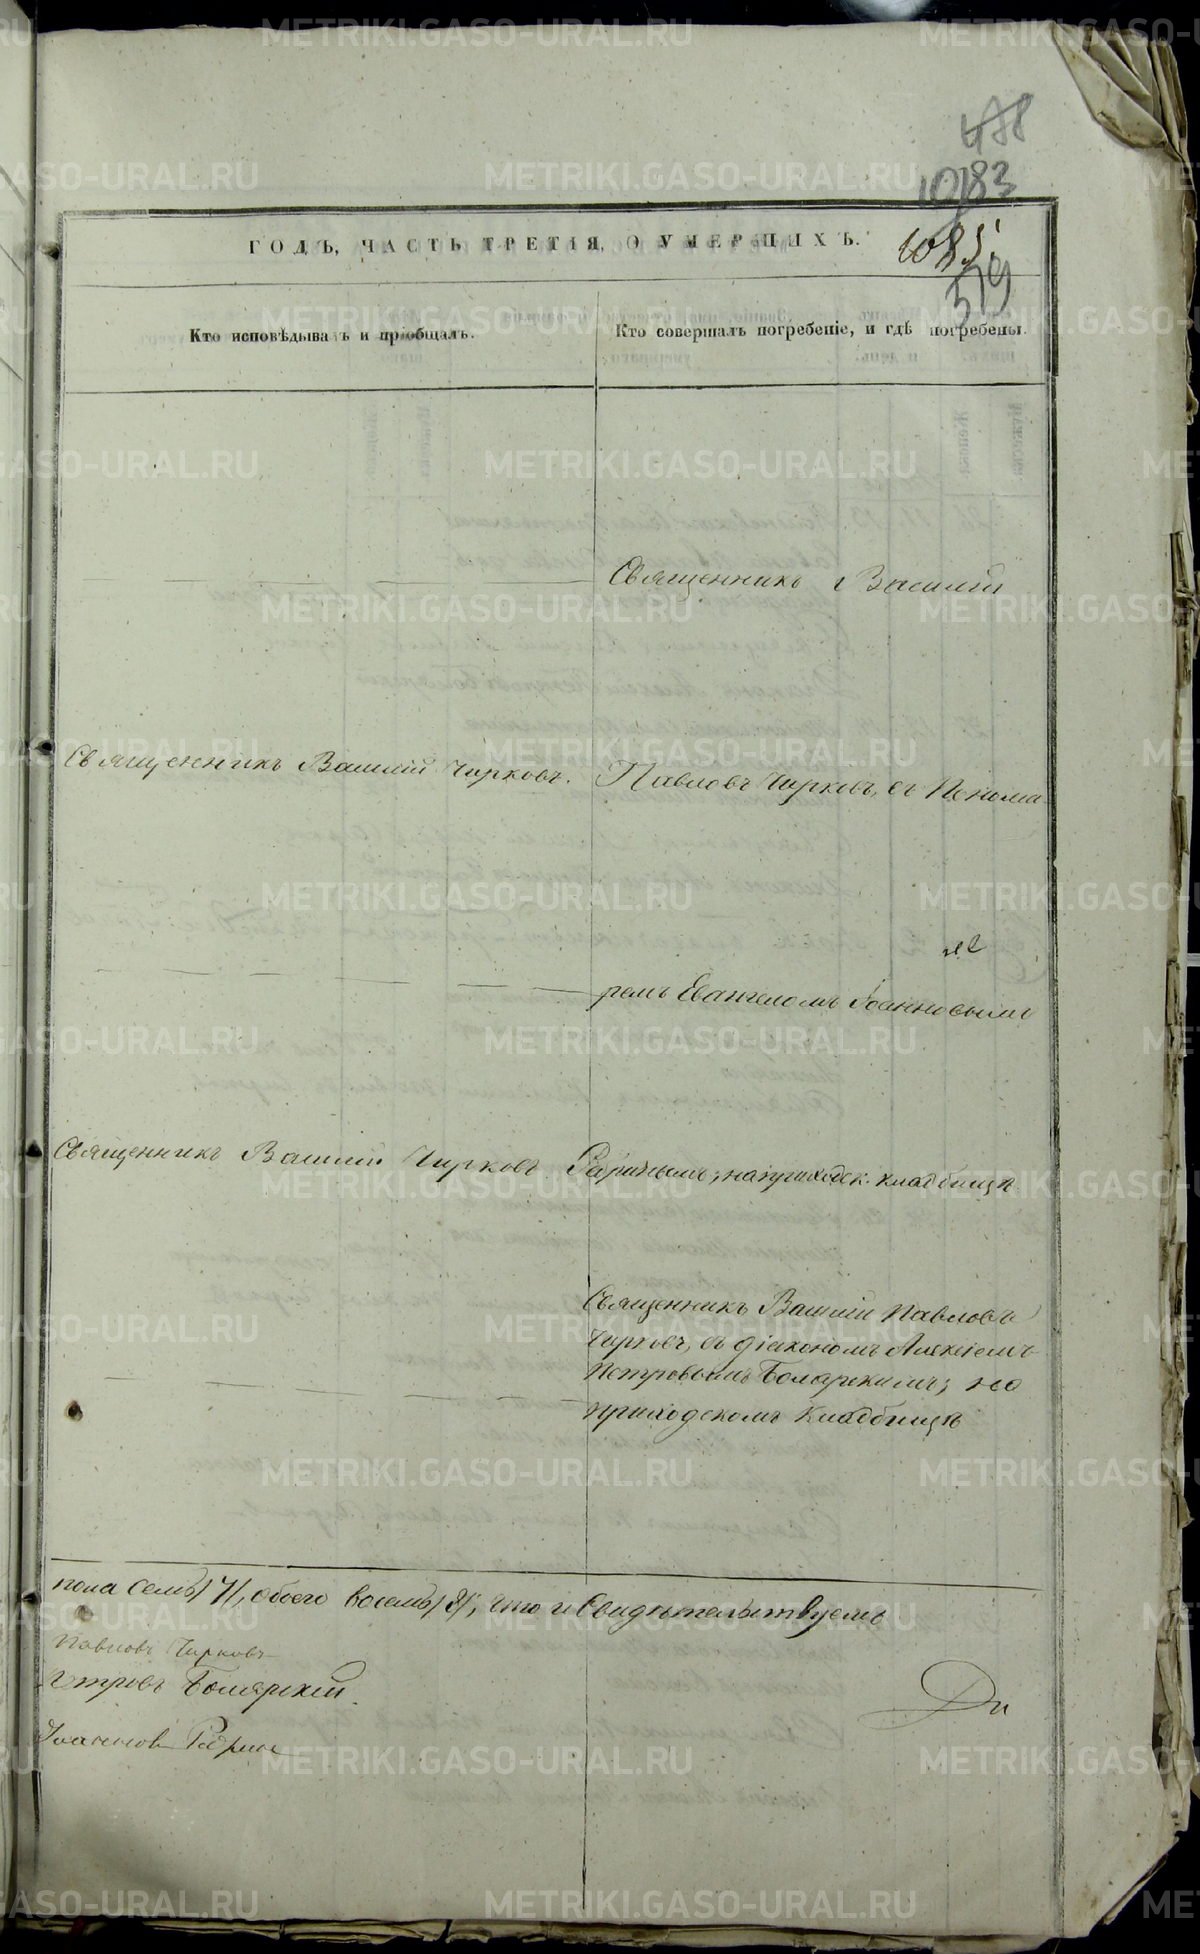 488
10783
1085.
519
ГОДЪ, ЧАСТЬ ТРЕТІЯ, О УМЕРШИХЪ.
Кто исповѣдывалъ и пріобщалъ.
Кто совершалъ погребеніе, и гдѣ погребены.
Священникъ Василій
Священникъ Василій Чирковъ.
Павловъ Чирковъ, съ Понома-
ремъ Евангеломъ Іоанновымъ
Священникъ Василій Чирковъ
на приходск. кладбищѣ
Священникъ Василій Павловъ
Чирковъ, съ діакономъ Алексіемъ
Петровымъ Болярскимъ; на
приходскомъ кладбищѣ
пола семь /7/, обоего восемь /8/, что и свидѣтельствуемъ
Павловъ Чирковъ
Петровъ Болярскій.
Іоанновъ
Ди
METRIKI.GASO-URAL.RU